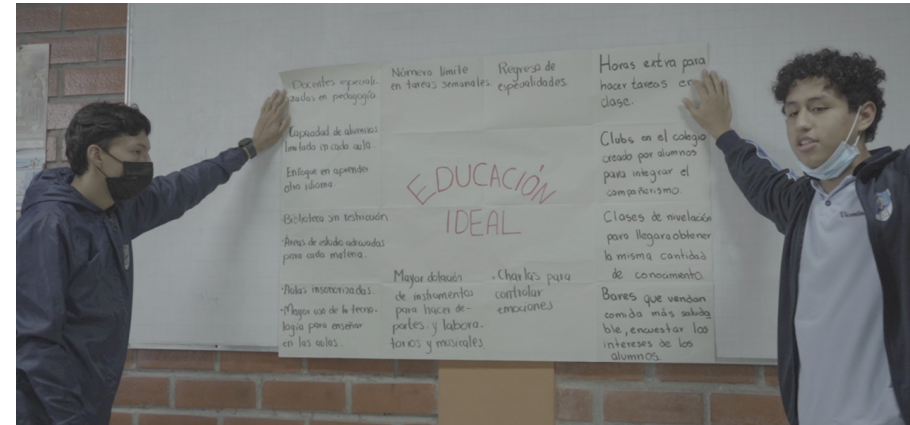 Docentes especiali-
zados en pedagogía
Capacidad de alumnos
limitada en cada aula
Enfoque en aprender
otro idioma.
Biblioteca sin restricción
·Áreas de estudio adecuadas
para cada materia.
·Aulas insonorizadas.
·Mayor uso de la tecno-
logía para enseñar
en las aulas.
Número límite
en tareas semanales
Regreso de
especialidades
EDUCACIÓN
IDEAL
Mayor dotación
de instrumentos
para hacer de-
portes, y labora-
torios y musicales
·Charlas para
controlar
emociones
Horas extra para
hacer tareas en
clase.
Clubs en el colegio
creado por alumnos
para integrar el
compañerismo.
Clases de nivelación
para llegar a obtener
la misma cantidad
de conocimento.
Bares que vendan
comida más saluda
ble, encuestar los
intereses de los
alumnos.